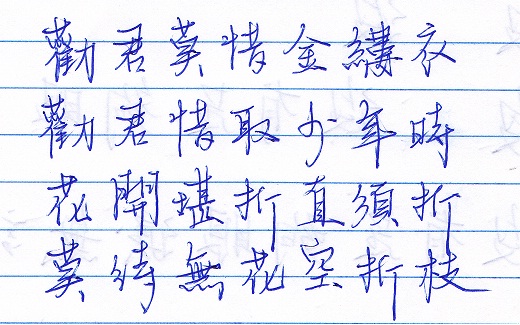 勸君莫惜金縷衣
勸君惜取少年時
花開堪折直須折
莫待無花空折枝